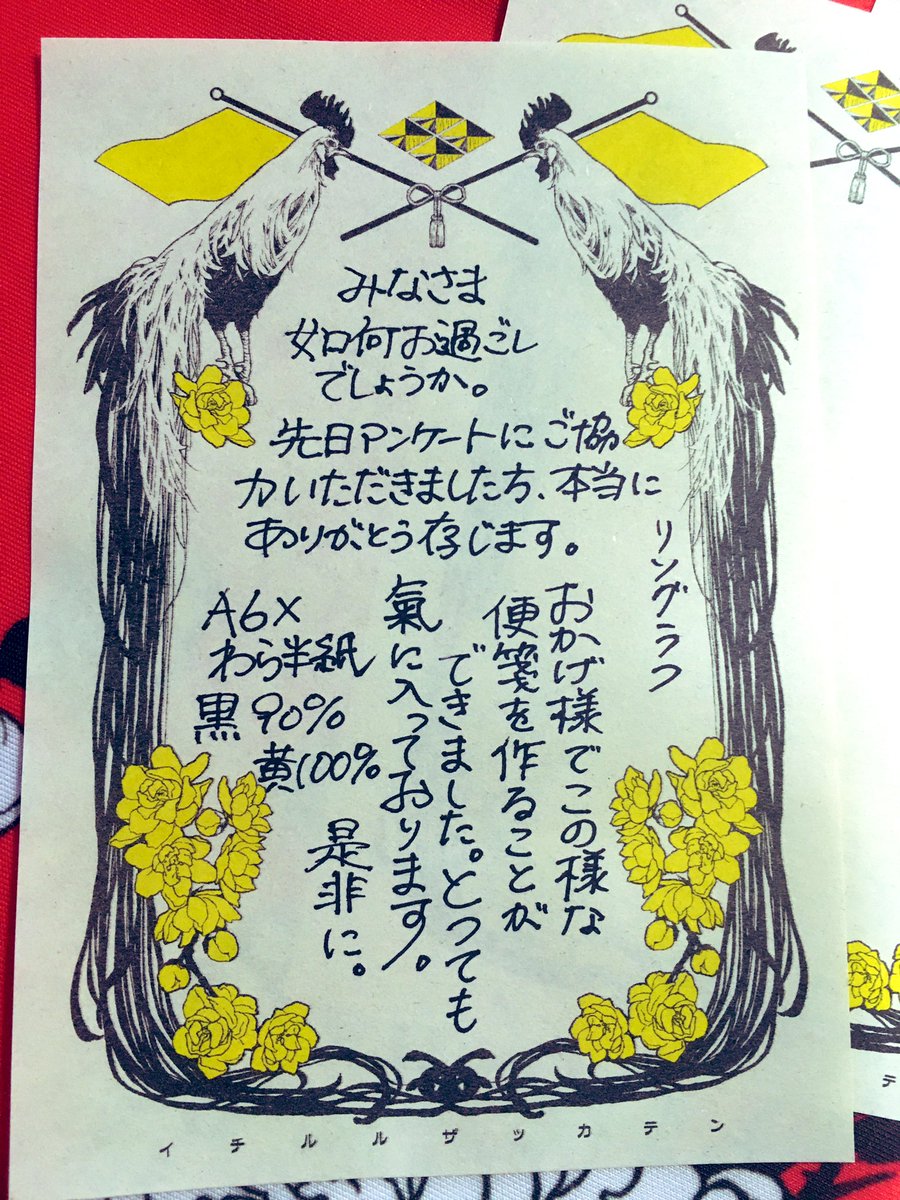 みなさま
如何お過ごし
でしょうか。
先日アンケートにご協
力いただきましたち、本当に
ありがとう存じます。
リソグラフ
おかげ様でこの様な
便箋を作ることが
できました。とっても
氣に入っております。
是非に。
A6×
わら半紙
黒90%
黄100%
イチルルザッカテン
テ